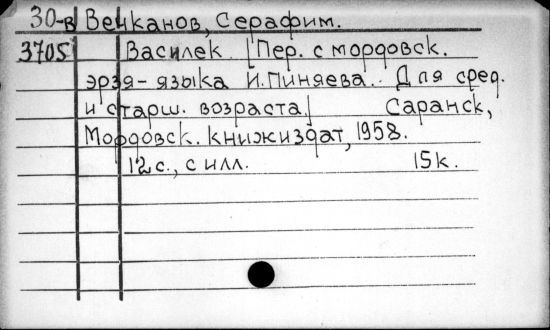 30-в Вечканов, Серафим.
3705 Василек. [Пер. с мордовск.
эрзя-языка И. Пиняева. Для сред.
и старш. возраста] Саранск,
Мордовск. книжиздат, 1958.
12 с., с илл. 15 к.